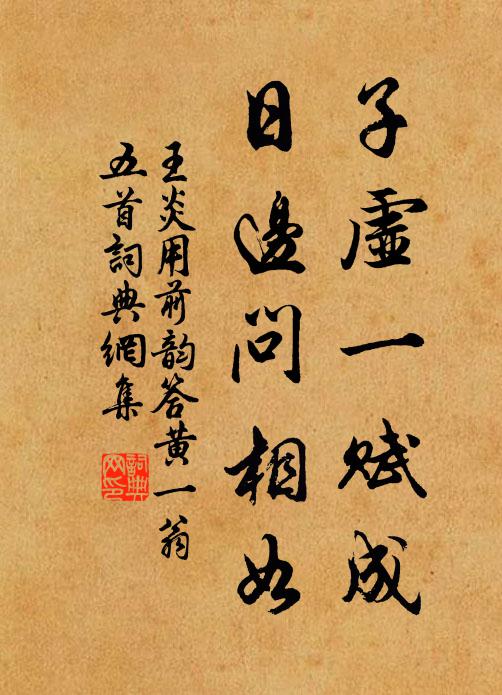 子虛一賦成
日邊問相如
王炎用前韵答黄一翁
五首詞典網集
詞典
网印